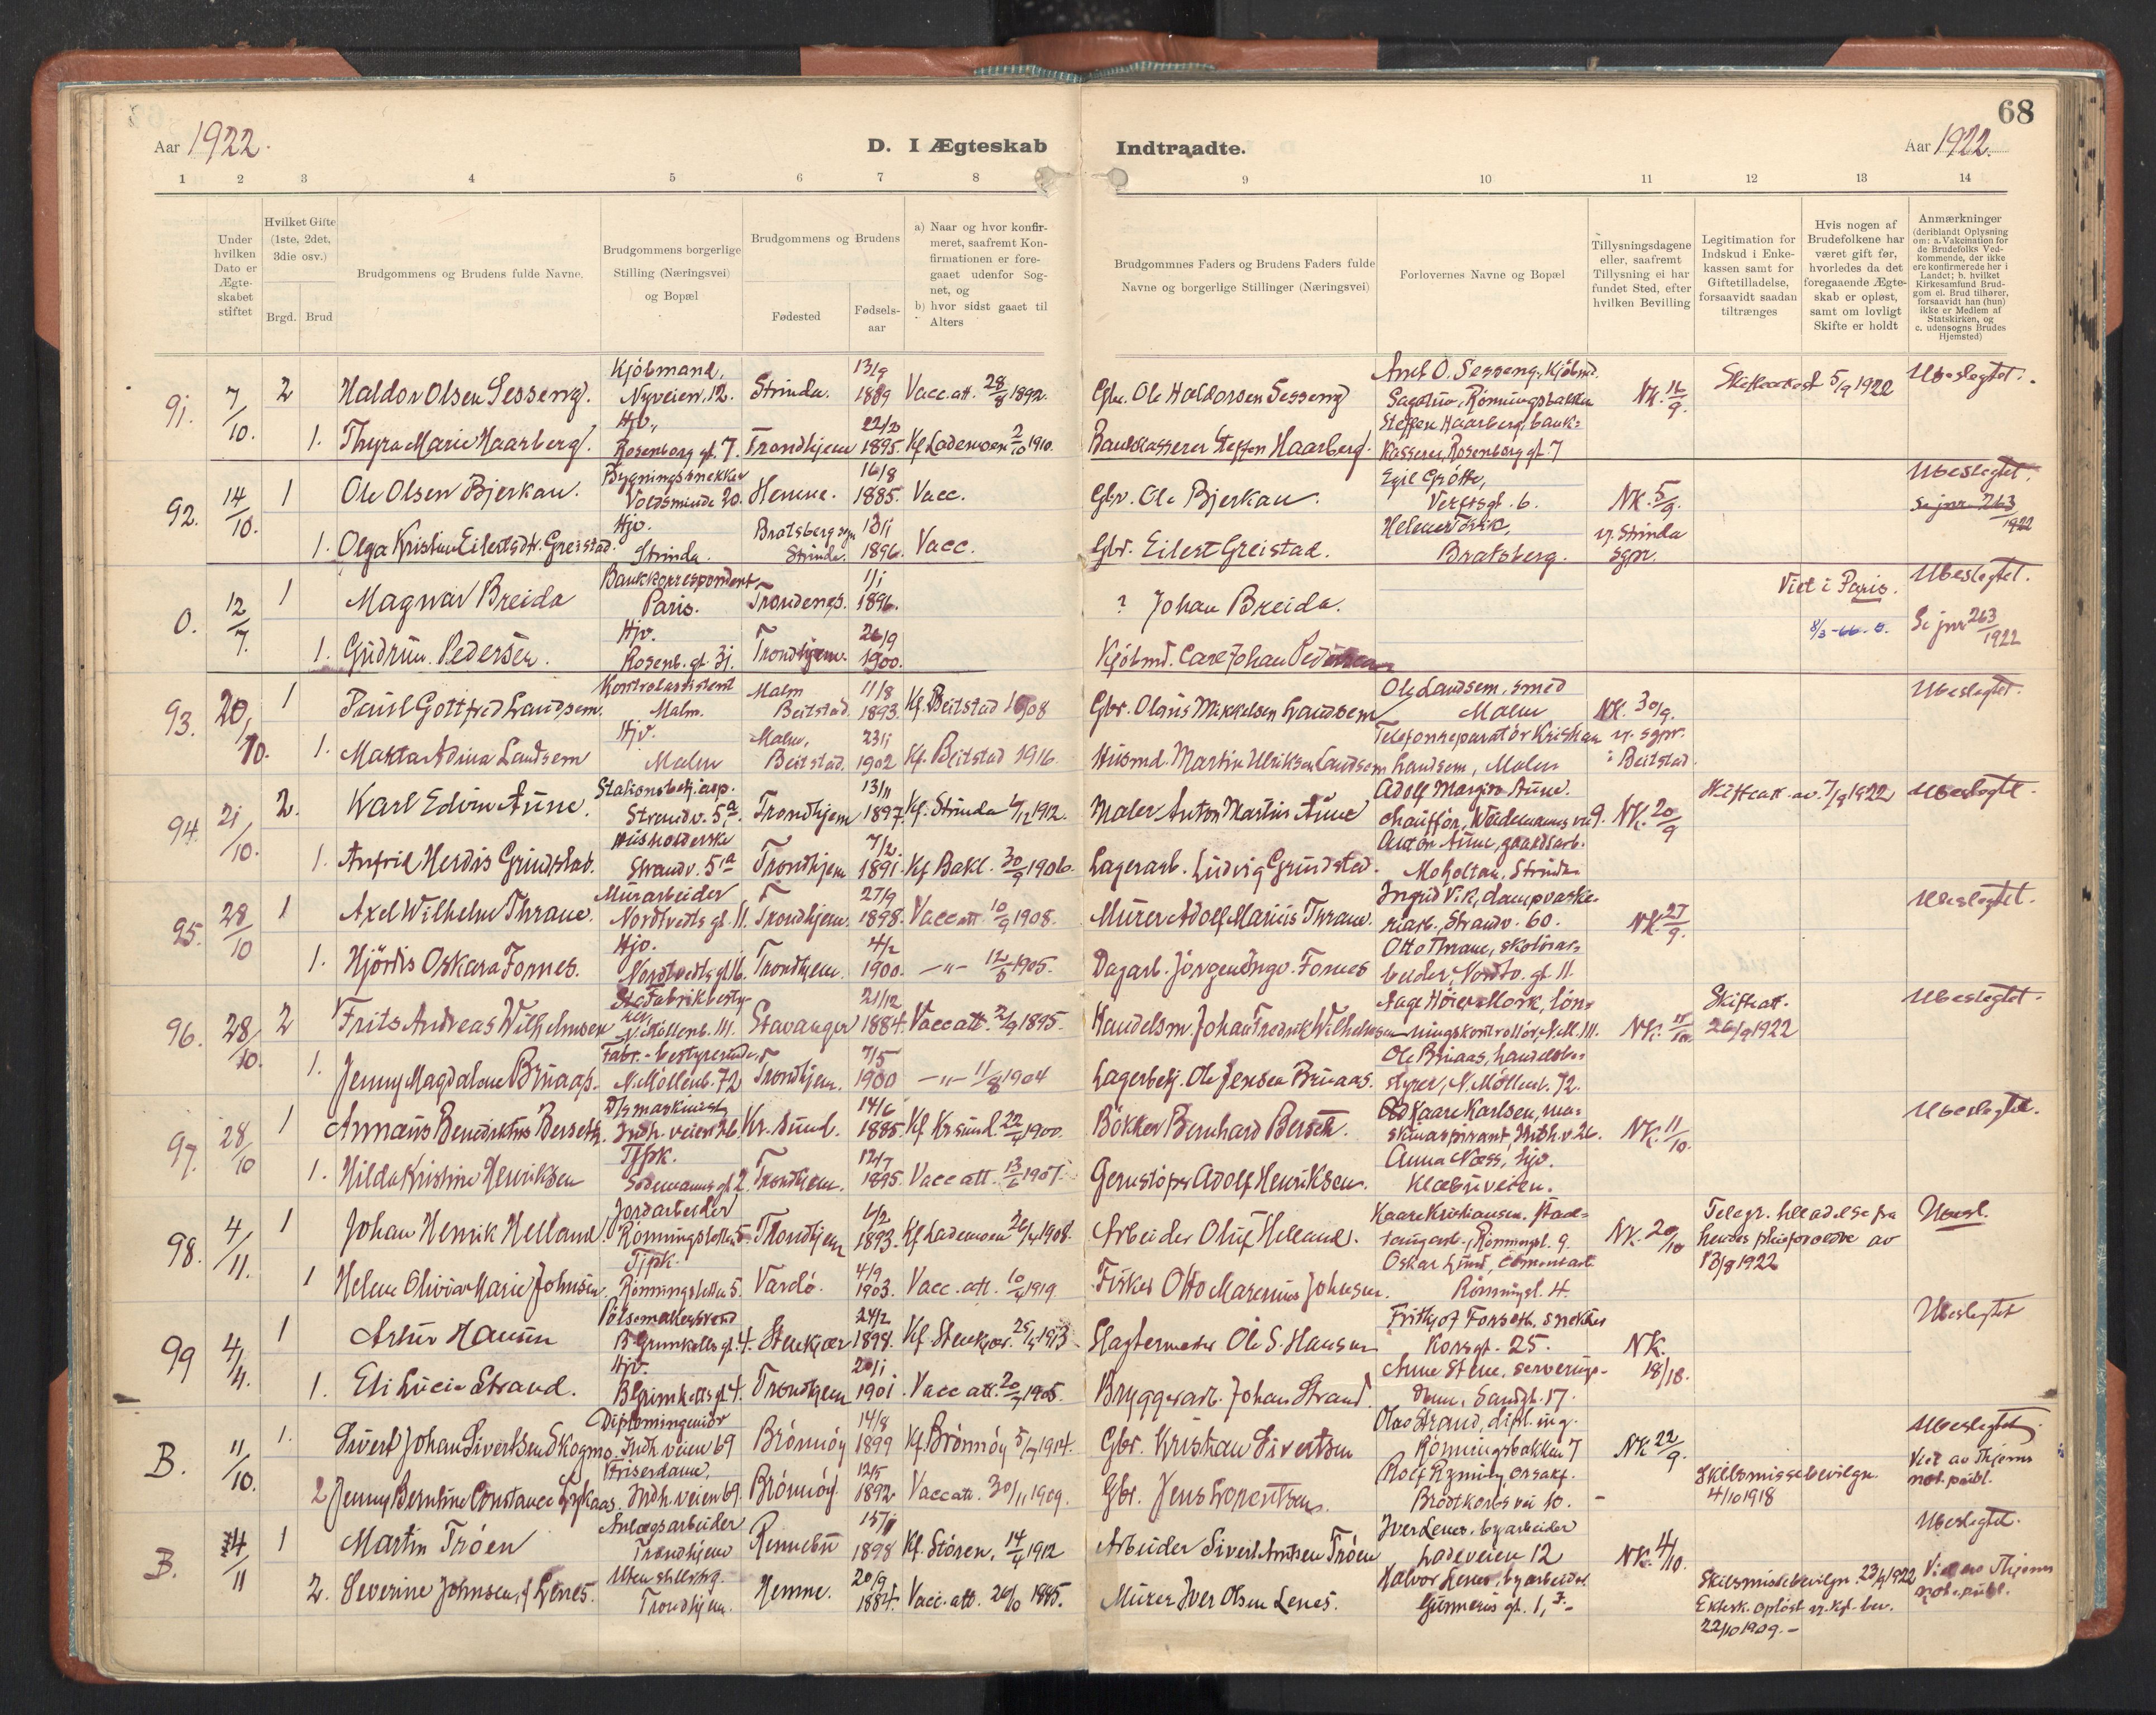 68
Aar 1922.
D. I Ægteskab Indtraadte.
Aar 1922.
1 2 3 4 5 6 7 8 9 10 11 12 13 14
Under hvilken Dato er Ægteskabet stiftet
Hvilket Gifte (1ste, 2det, 3die osv.)
Brgd. Brud
Brudgommens og Brudens fulde Navne.
Brudgommens borgerlige Stilling (Næringsvei) og Bopæl
Brudgommens og Brudens
Fødested
Fødsels-aar
a) Naar og hvor konfirmeret, saafremt Konfirmationen er foregaaet udenfor Sognet, og
b) hvor sidst gaaet til Alters
Brudgommnes Faders og Brudens Faders fulde Navne og borgerlige Stillinger (Næringsvei)
Forlovernes Navne og Bopæl
Tillysningsdagene eller, saafremt Tillysning ei har fundet Sted, efter hvilken Bevilling
Legitimation for Indskud i Enkekassen samt for Giftetilladelse, forsaavidt saadan tiltrænges
Hvis nogen af Brudefolkene har været gift før, hvorledes da det foregaaende Ægteskab er opløst, samt om lovligt Skifte er holdt
Anmærkninger (deriblandt Oplysning om: a. Vakcination for de Brudefolks Vedkommende, der ikke ere konfirmerede her i Landet; b. hvilket Kirkesamfund Brudgom el. Brud tilhører, forsaavidt han (hun) ikke er Medlem af Statskirken, og c. udensogns Brudes Hjemsted)
91. 7/10. 2 Haldor Olsen Sesseng. Kjöbmand, Nyveien, 12. Strinda. 13/9 1889 Vacc. att. 28/8 1892. Gbr. Ole Haldorsen Sesseng Axel O. Sesseng, Kjöbmd. NK. 16/9. 5/9 1922 Ubeslegtet.
1. Thyra Marie Haarberg. Hjv. Rosenborg gt. 7. Trondhjem 22/2 1895. Kf. Lademoen 2/10 1910. Bankkasserer Steffen Haarberg. Steffen Haarberg, bankkasserer, Rosenborg gt. 7
92. 14/10. 1 Ole Olsen Bjerkan. Bygningssnekker Voldsminde 20. Hemne. 16/8 1885. Vacc. Gbr. Ole Bjerkan. Egil Grötte, Verftsgt. 6. NK. 5/9. Ubeslegtet. Se jnr 263/1922
1. Olga Kristine Eilertsdtr. Greistad. Hjv. Strinda. Bratsberg sogn Strinda. 13/1 1896. Vacc. Gbr. Eilert Greistad. Bratsberg. v. Strinda sgpr.
0. 12/7. 1 Magnar Breida Bankkorrespondent Paris. Trondenes. 1/1 1896. ? Johan Breida. Viet i Paris. Ubeslegtet.
1. Gudrun Pedersen. Hjv. Rosenb. gt. 31. Trondhjem. 26/9 1900. Kjöbmd. Carl Johan Pedersen 8/3-66. Se jnr 263/1922
93. 20/10. 1 Paul Gottfred Landsem. Kontrolassistent Malm. Malm Beitstad. 11/8 1893. Kf. Beitstad 1908 Gbr. Olaus Mikkelsen Landsem Ole Landsem, smed Malm NK. 30/9. Ubeslegtet.
1. Makta Adina Landsem Hjv. Malm Malm, Beitstad. 23/1 1902 Kf. Beitstad 1916 Husmd. Martin Ulriksen Landsem Telefonreparatör Kristian Landsem, Malm v. sgpr. i Beitstad
94. 21/10. 2. Karl Edvin Aune. Stationsbetj. asp. Strandv. 5a. Trondhjem 13/11 1897. Kf. Strinda 1912. Maler Anton Martin Aune Adolf Margin Aune. chaufför, NK. 20/9 Skifteatt. av 7/9 1922 Ubeslegtet.
1. Anfrid Herdis Grundstad. Husholderske Strandv. 5a Trondhjem 7/2. 1891. Kf. Bakl. 30/9 1906. Lagerarb. Ludvig Grundstad. Anton Aune, gaardsarb. Moholtan, Strinda
95. 28/10 1 Axel Wilhelm Thrane. Murarbeider Nordtvedts gt. 11. Trondhjem. 27/9 1898. Vacc att 10/9 1908. Murer Adolf Marius Thrane. Ingrid Vik, dampvaskeriarb., Strandv. 60. NK. 27/9. Ubeslegtet.
1. Hjördis Oskara Fornes. Hjv. Nordtvedts gt 16. Trondhjem. 4/2 1900. —"— 1905. Dagarb. Jörgen Ingv. Fornes Otto Thrane, skotöiarbeider, Nordtv. gt. 11.
96. 28/10. 2 Frits Andreas Wilhelmsen Fabrikbestyrer, N. Möllenb. 111. Stavanger 21/12 1884. Vacc att. 2/9 1895. Handelsm. Johan Fredrik Wilhelmsen Aage Höier Mork, lönningskontrollör, N. Möll. 111. NK. 11/10. Skifteatt. 26/9 1922 Ubeslegtet.
1. Jenny Magdalene Bruaas. Fabr.-bestyrerinde N. Möllenb. 72 Trondhjem. 7/5 1900 —"— 11/8 1904 Lagerbetj. Ole Jensen Bruaas. Ole Bruaas, handelsbestyrer, N. Möllenb. 72.
97. 28/10 1 Annæus Benediktus Berseth. D/s maskinist, Indh. veien 26. Kr. sund. 14/6 1885. Kf Kr sund. 22/4 1900. Bökker Bernhard Berseth. Kaare Karlsen, maskinaspirant, Indh. v. 26. NK. 11/10. Ubeslegtet.
1. Hilda Kristine Henriksen Tjpk. Sodemanns gt 2. Trondhjem. 12/7 1895. Vacc att. 13/6 1907. Adolf Henriksen. Anna Næss, hjv. Klæbuveien.
98. 4/11. 1 Johan Henrik Helland. Jordarbeider Rönningsletten 5. Trondhjem 6/2 1893. Kf Lademoen 26/4 1908. Arbeider Oluf Helland. Kaare Kristiansen. NK. 20/10 Telegr. tilladelse fra hendes av 13/9 1922 Ubesl.
1 Helene Olivia Marie Johnsen. Tjpk. Rönningsletten 5. Vardö. 4/9 1903. Vacc. att. 10/4 1919. Fisker Otto Marenius Johnsen. Oskar Lund, cementarb. Rönningsl. 4.
99 4/4. 1 Artur Hansen Pölsemakersvend B. Grimkells gt. 4. Stenkjær 24/2 1898. Kf. Stenkjær. 1913 Slagtermester Ole S. Hansen Frithjof Forseth, snekker Korsgt. 25. NK. 18/10. Ubeslegtet
1. Eli Lucie Strand. Hjv. B. Grimkells gt 4. Trondhjem 20/1 1901. Vacc att. 1905. Bryggearb. Johan Strand. Anne Stene, serveringsdame, Sandgt. 17.
B. 11/10. 1. Sivert Johan Sivertsen Skogmo. Diplomingeniör Indh. veien 69 Brönnöy 14/8 1899 Kf. Brönnöy 5/7 1914. Gbr. Kristian Sivertsen Olav Strand, dipl. ing. Rönningsbakken 7 NK 22/9. Ubeslegtet. Viet av Thjems not. publ.
2 Jenny Berntine Constance Lykaas. Friserdame, Indh. veien 69. Brönnöy. 12/5 1892 Vacc att. 30/11 1909. Gbr. Jens Lorentsen. Brodtkorbs vei 10. Skilsmissebevilgn. 4/10 1918
B. 4/11 1 Martin Tröen Anlægsarbeider Trondhjem Rennebu 1898 Kf. Stören, 14/4 1912 Arbeider Sivert Arntsen Tröen Iver Lenes, byarbeider Ladeveien 12 NK. 4/10. Ubeslegtet.
2. Severine Johnsen, f. Lenes. Uten stilling. Trondhjem. Hemne. 20/9 1884. Vacc. att. 1885. Murer Iver Olsen Lenes. Halvor Lenes, byarbeider Gunnerus gt. 1, Skilsmissebevilgn. 23/9 1922 Ektesk. oplöst v. Kgl. bev. 22/10 1909. — Viet av Thjems not. publ.